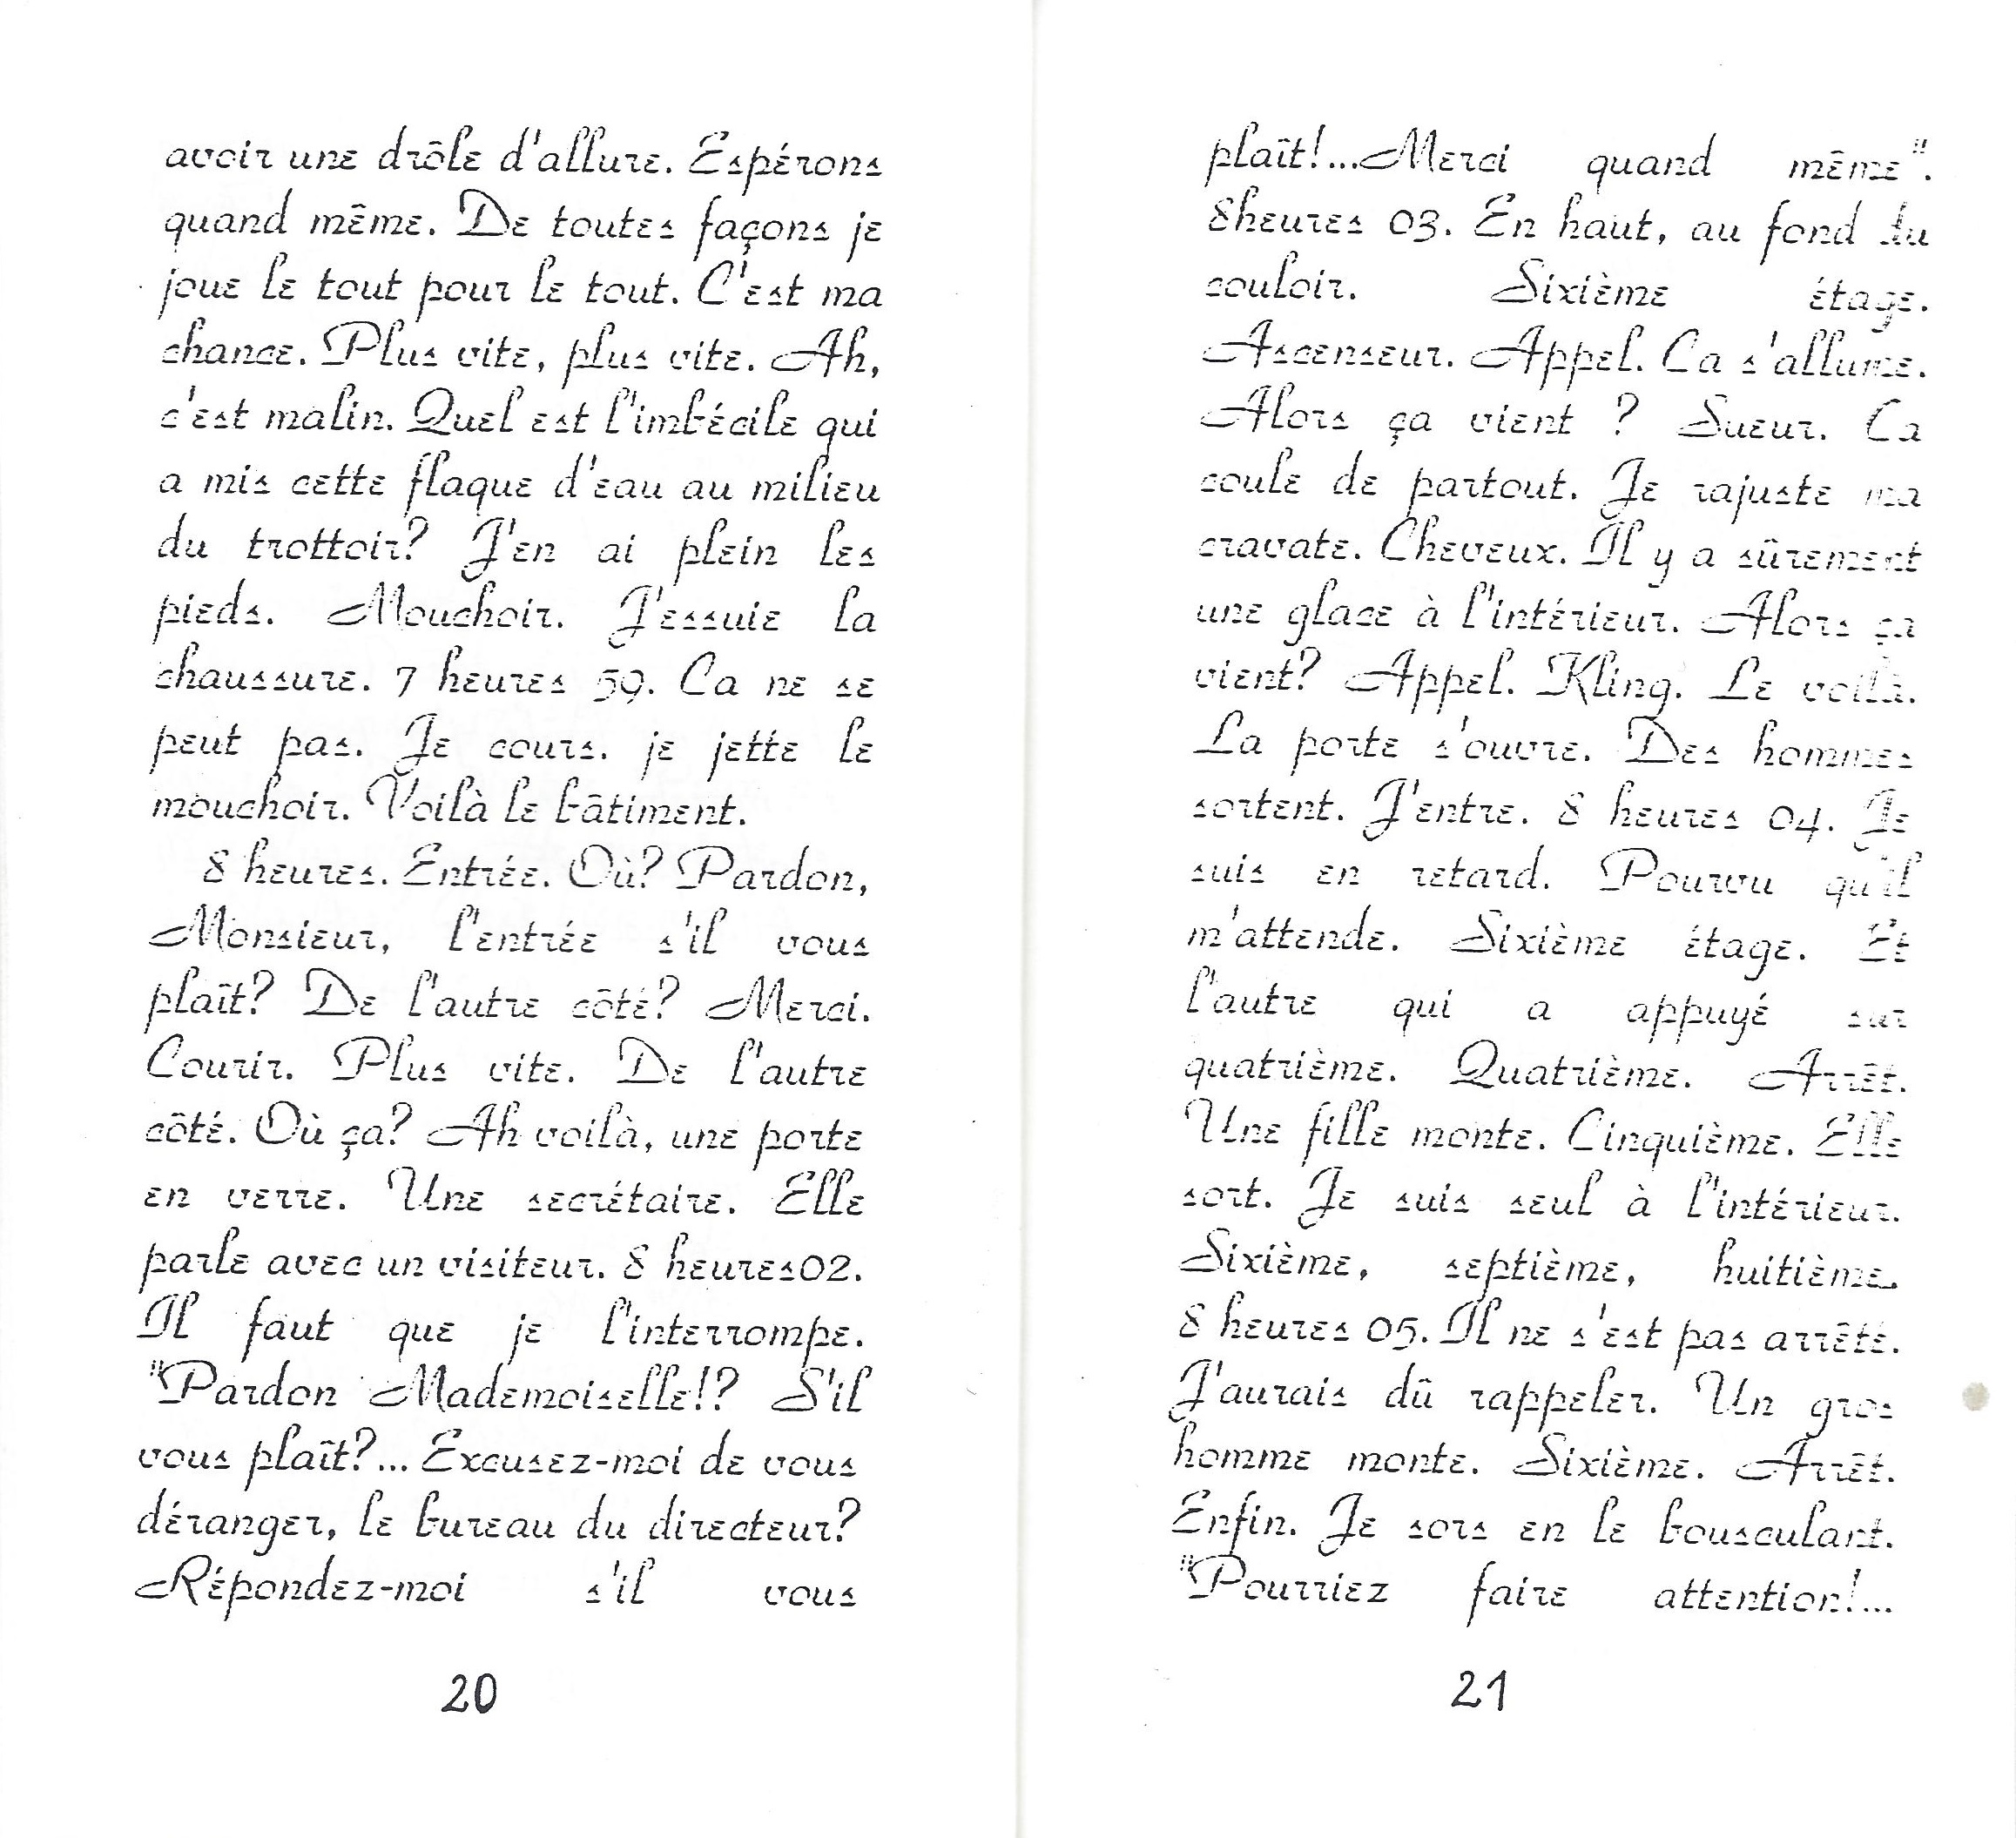 avoir une drôle d'allure. Espérons
quand même. De toutes façons je
joue le tout pour le tout. C'est ma
chance. Plus vite, plus vite. Ah,
c'est malin. Quel est l'imbécile qui
a mis cette flaque d'eau au milieu
du trottoir? J'en ai plein les
pieds. Mouchoir. J'essuie la
chaussure. 7 heures 59. Ca ne se
peut pas. Je cours. je jette le
mouchoir. Voilà le bâtiment.
8 heures. Entrée. Où? Pardon,
Monsieur, l'entrée s'il vous
plaît? De l'autre côté? Merci.
Courir. Plus vite. De l'autre
côté. Où ça? Ah voilà, une porte
en verre. Une secrétaire. Elle
parle avec un visiteur. 8 heures02.
Il faut que je l'interrompe.
"Pardon Mademoiselle!? S'il
vous plaît?... Excusez-moi de vous
déranger, le bureau du directeur?
Répondez-moi s'il vous
20
plaît!...Merci quand même".
8heures 03. En haut, au fond du
couloir. Sixième étage.
Ascenseur. Appel. Ca s'allume.
Alors ça vient ? Sueur. Ca
coule de partout. Je rajuste ma
cravate. Cheveux. Il y a sûrement
une glace à l'intérieur. Alors ça
vient? Appel. Kling. Le voilà.
La porte s'ouvre. Des hommes
sortent. J'entre. 8 heures 04. Je
suis en retard. Pourvu qu'il
m'attende. Sixième étage. Et
l'autre qui a appuyé sur
quatrième. Quatrième. Arrêt.
Une fille monte. Cinquième. Elle
sort. Je suis seul à l'intérieur.
Sixième, septième, huitième.
8 heures 05. Il ne s'est pas arrêté.
J'aurais dû rappeler. Un gros
homme monte. Sixième. Arrêt.
Enfin. Je sors en le bousculant.
"Pourriez faire attention!...
21